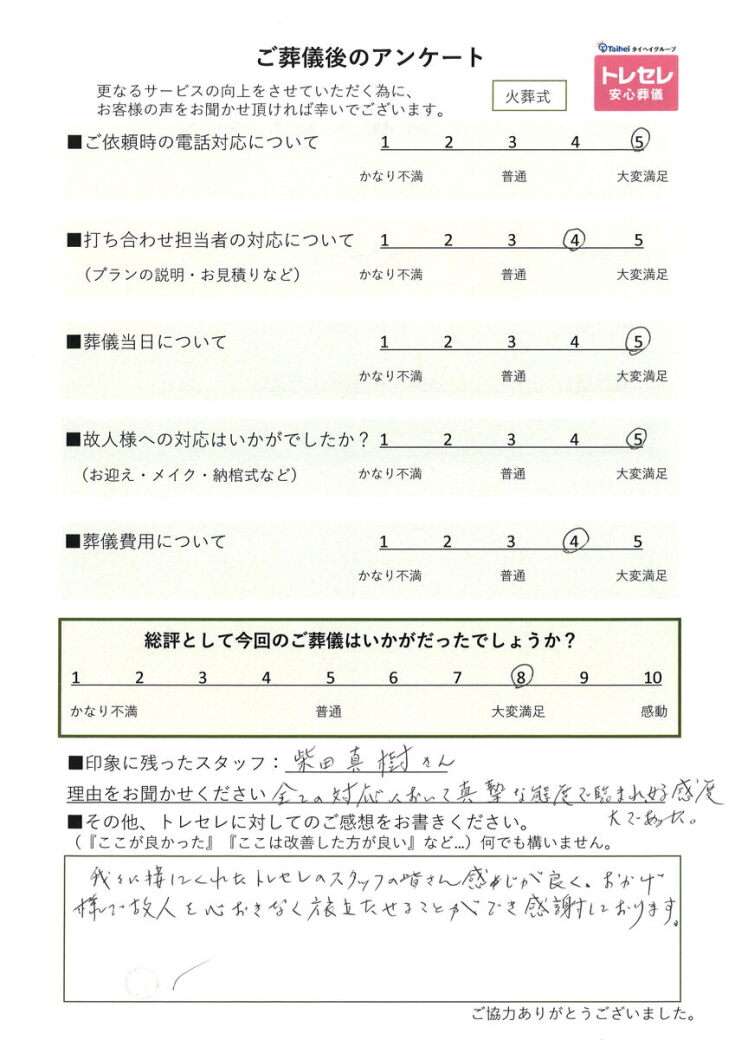 Taihei タイヘイグループ
トレセレ
安心葬儀
ご葬儀後のアンケート
更なるサービスの向上をさせていただく為に、
お客様の声をお聞かせ頂ければ幸いでございます。
火葬式
■ご依頼時の電話対応について 1 2 3 4 5
かなり不満 普通 大変満足
■打ち合わせ担当者の対応について 1 2 3 4 5
（プランの説明・お見積りなど） かなり不満 普通 大変満足
■葬儀当日について 1 2 3 4 5
かなり不満 普通 大変満足
■故人様への対応はいかがでしたか？ 1 2 3 4 5
（お迎え・メイク・納棺式など） かなり不満 普通 大変満足
■葬儀費用について 1 2 3 4 5
かなり不満 普通 大変満足
総評として今回のご葬儀はいかがだったでしょうか？
1 2 3 4 5 6 7 8 9 10
かなり不満 普通 大変満足 感動
■印象に残ったスタッフ：柴田真樹さん
理由をお聞かせください 全ての対応において真摯な態度で臨まれ好感度
大であった。
■その他、トレセレに対してのご感想をお書きください。
（『ここが良かった』『ここは改善した方が良い』など…）何でも構いません。
我々に接してくれたトレセレのスタッフの皆さん感じが良く。おかげ
様で故人を心おきなく旅立たせることができ感謝しております。
ご協力ありがとうございました。